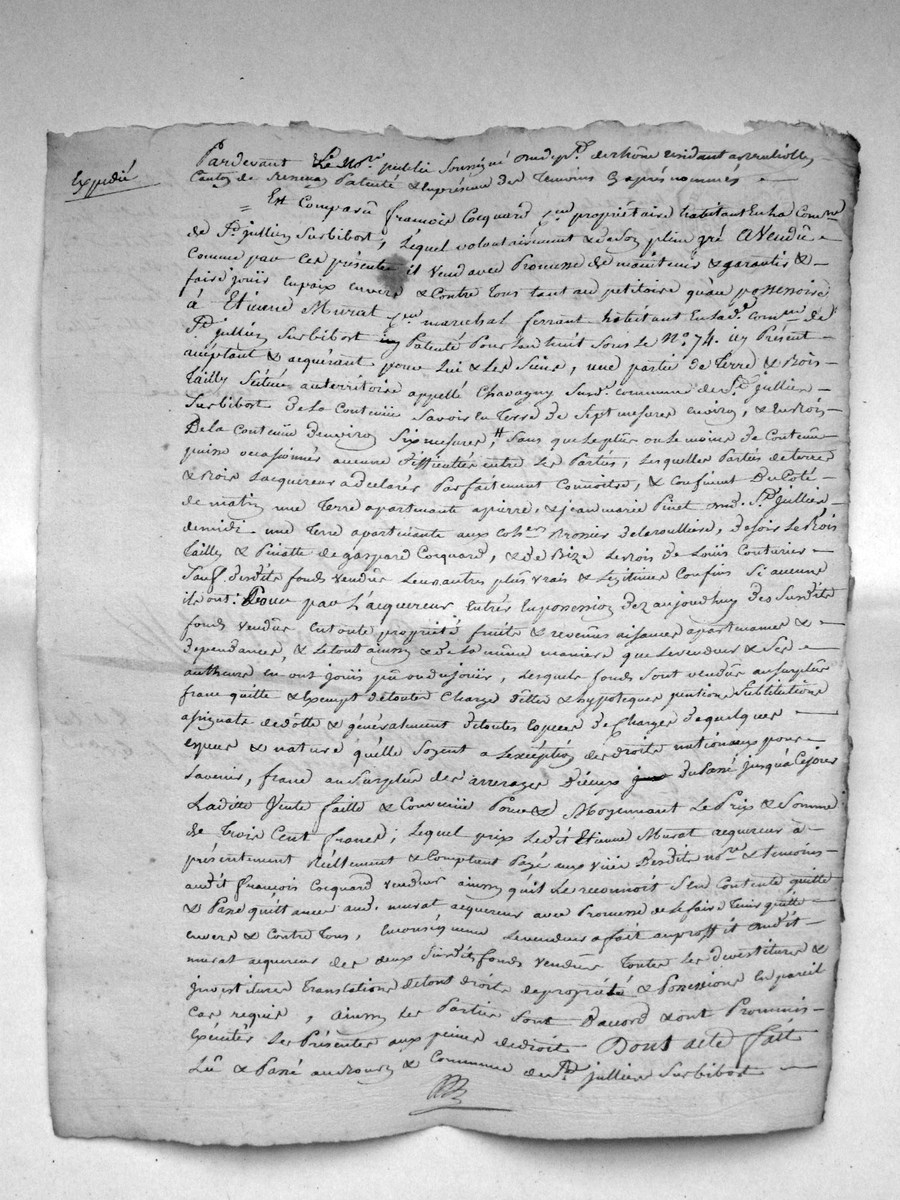 Expedié
Pardevant Le No.re public Soussigné audép.t du rhône residant
Canton de Patenté & Enprésence des Temoins Cy aprés nommés
= Est Comparû françois Cocquard propriétaire habitant En La Com.ne
de S.t jullien Surbibost, Lequel volontairement & deSon plein gré A Vendû
Comme par Ces présentes il vend avec Promesse de maintenir & garantir &
faire joüir enpaix envers & Contre Tous tant au petitoire qu'au possessoire
à Etienne Murat marechal ferrant habitant EnLad. Com.ne de
S.t jullien Surbibost Patenté Pour Lan huit Sous Le N.o 74. icy Présent
acceptant & acquérant pour Lui & Les Siens, une partie de Terre & Bois
Tailly Scitués auterritoire appellé Chavagny Susd. Commune de S.t jullien
Surbibost De La Contenüe Savoir en Terre de Sept mesures environ, & en Bois
De La Contenüe denviron Six mesures, Sans que Le plus ou Le moins de Contenüe
puisse occasionner aucune difficultés entre Les Parties, Lesquelles Parties de terres
& Bois Lacquereur a déclarés Parfaitement Connoitre, & Confinent Du Coté
de matin une Terre apartenante a pierre, & jean marie Pinet aud. S.t jullien
demidi une Terre apartenante aux Bronier delaroulliere, de soir Le Bois
tailly & Pinatte de gaspard Cocquard, & de Bize Les Bois de Loüis Couturier
Sauf desdits fonds vendûs Leurs autres plus vrais & Legitimes Confins Si aucune
ils ont. Pour par L'acquereur Entrer En possession dez aujourdhuy des Susdits
fonds vendûs en toute propriété fruits & revenûs aisances apartenances &
dependances, & Letout ainsy & de La même maniere que Levendeur & Ses
autheurs en ont joüis pû ou dû joüir, Lesquels fonds Sont vendûs au surplus
franc quitte & exempt detoutes Charges dettes & hypoteques pensions Substitutions
deddotte & généralement detoutes especes de Charges de quelques
especes & nature quelle Soyent a Lexception des droits nationaux pour
Lavenir, franc au Surplus des arrerages D'iceux Du Passé jusqu'à Ce jour
Laditte Vente faitte & Convenüe Pour & Moyennant Le Prix & Somme
de Trois Cent francs, Lequel prix Ledit Etienne Murat acquereur à
présentement Réellement & Comptant Payé aux vüës Desdits no.re & temoins
audit françois Cocquard vendeur ainsy qu'il Le reconnoit S'en Contente quitte
& Passe quittance aud. murat acquereur avec Promesse de Le faire Tenir quitte
envers & Contre Tous, En conséquence Levendeur a fait au proffit dudit
murat acquereur des deux Susdits fonds vendûs Toutes Les Devestitures &
investitures Translations detous droits de propriété & Possessions En pareil
Cas requis, ainsy Les Parties Sont D'accord & ont Promis
Exécuter Les Présentes aux peines de droit Dont acte fait
Lû & Passé & Commune de S.t jullien Surbibost